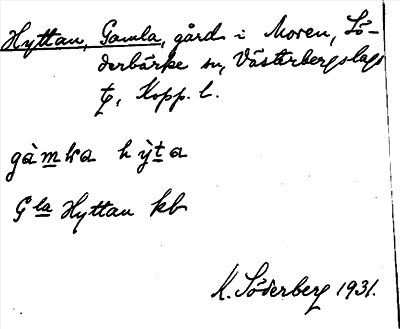 Hyttan, Gamla, gård i Moren, Sö-
derbärke sn, Västerbergslags
tg, Kopp. l.
gàmka hỳta
Gla Hyttan kb
K. Söderberg 1931.